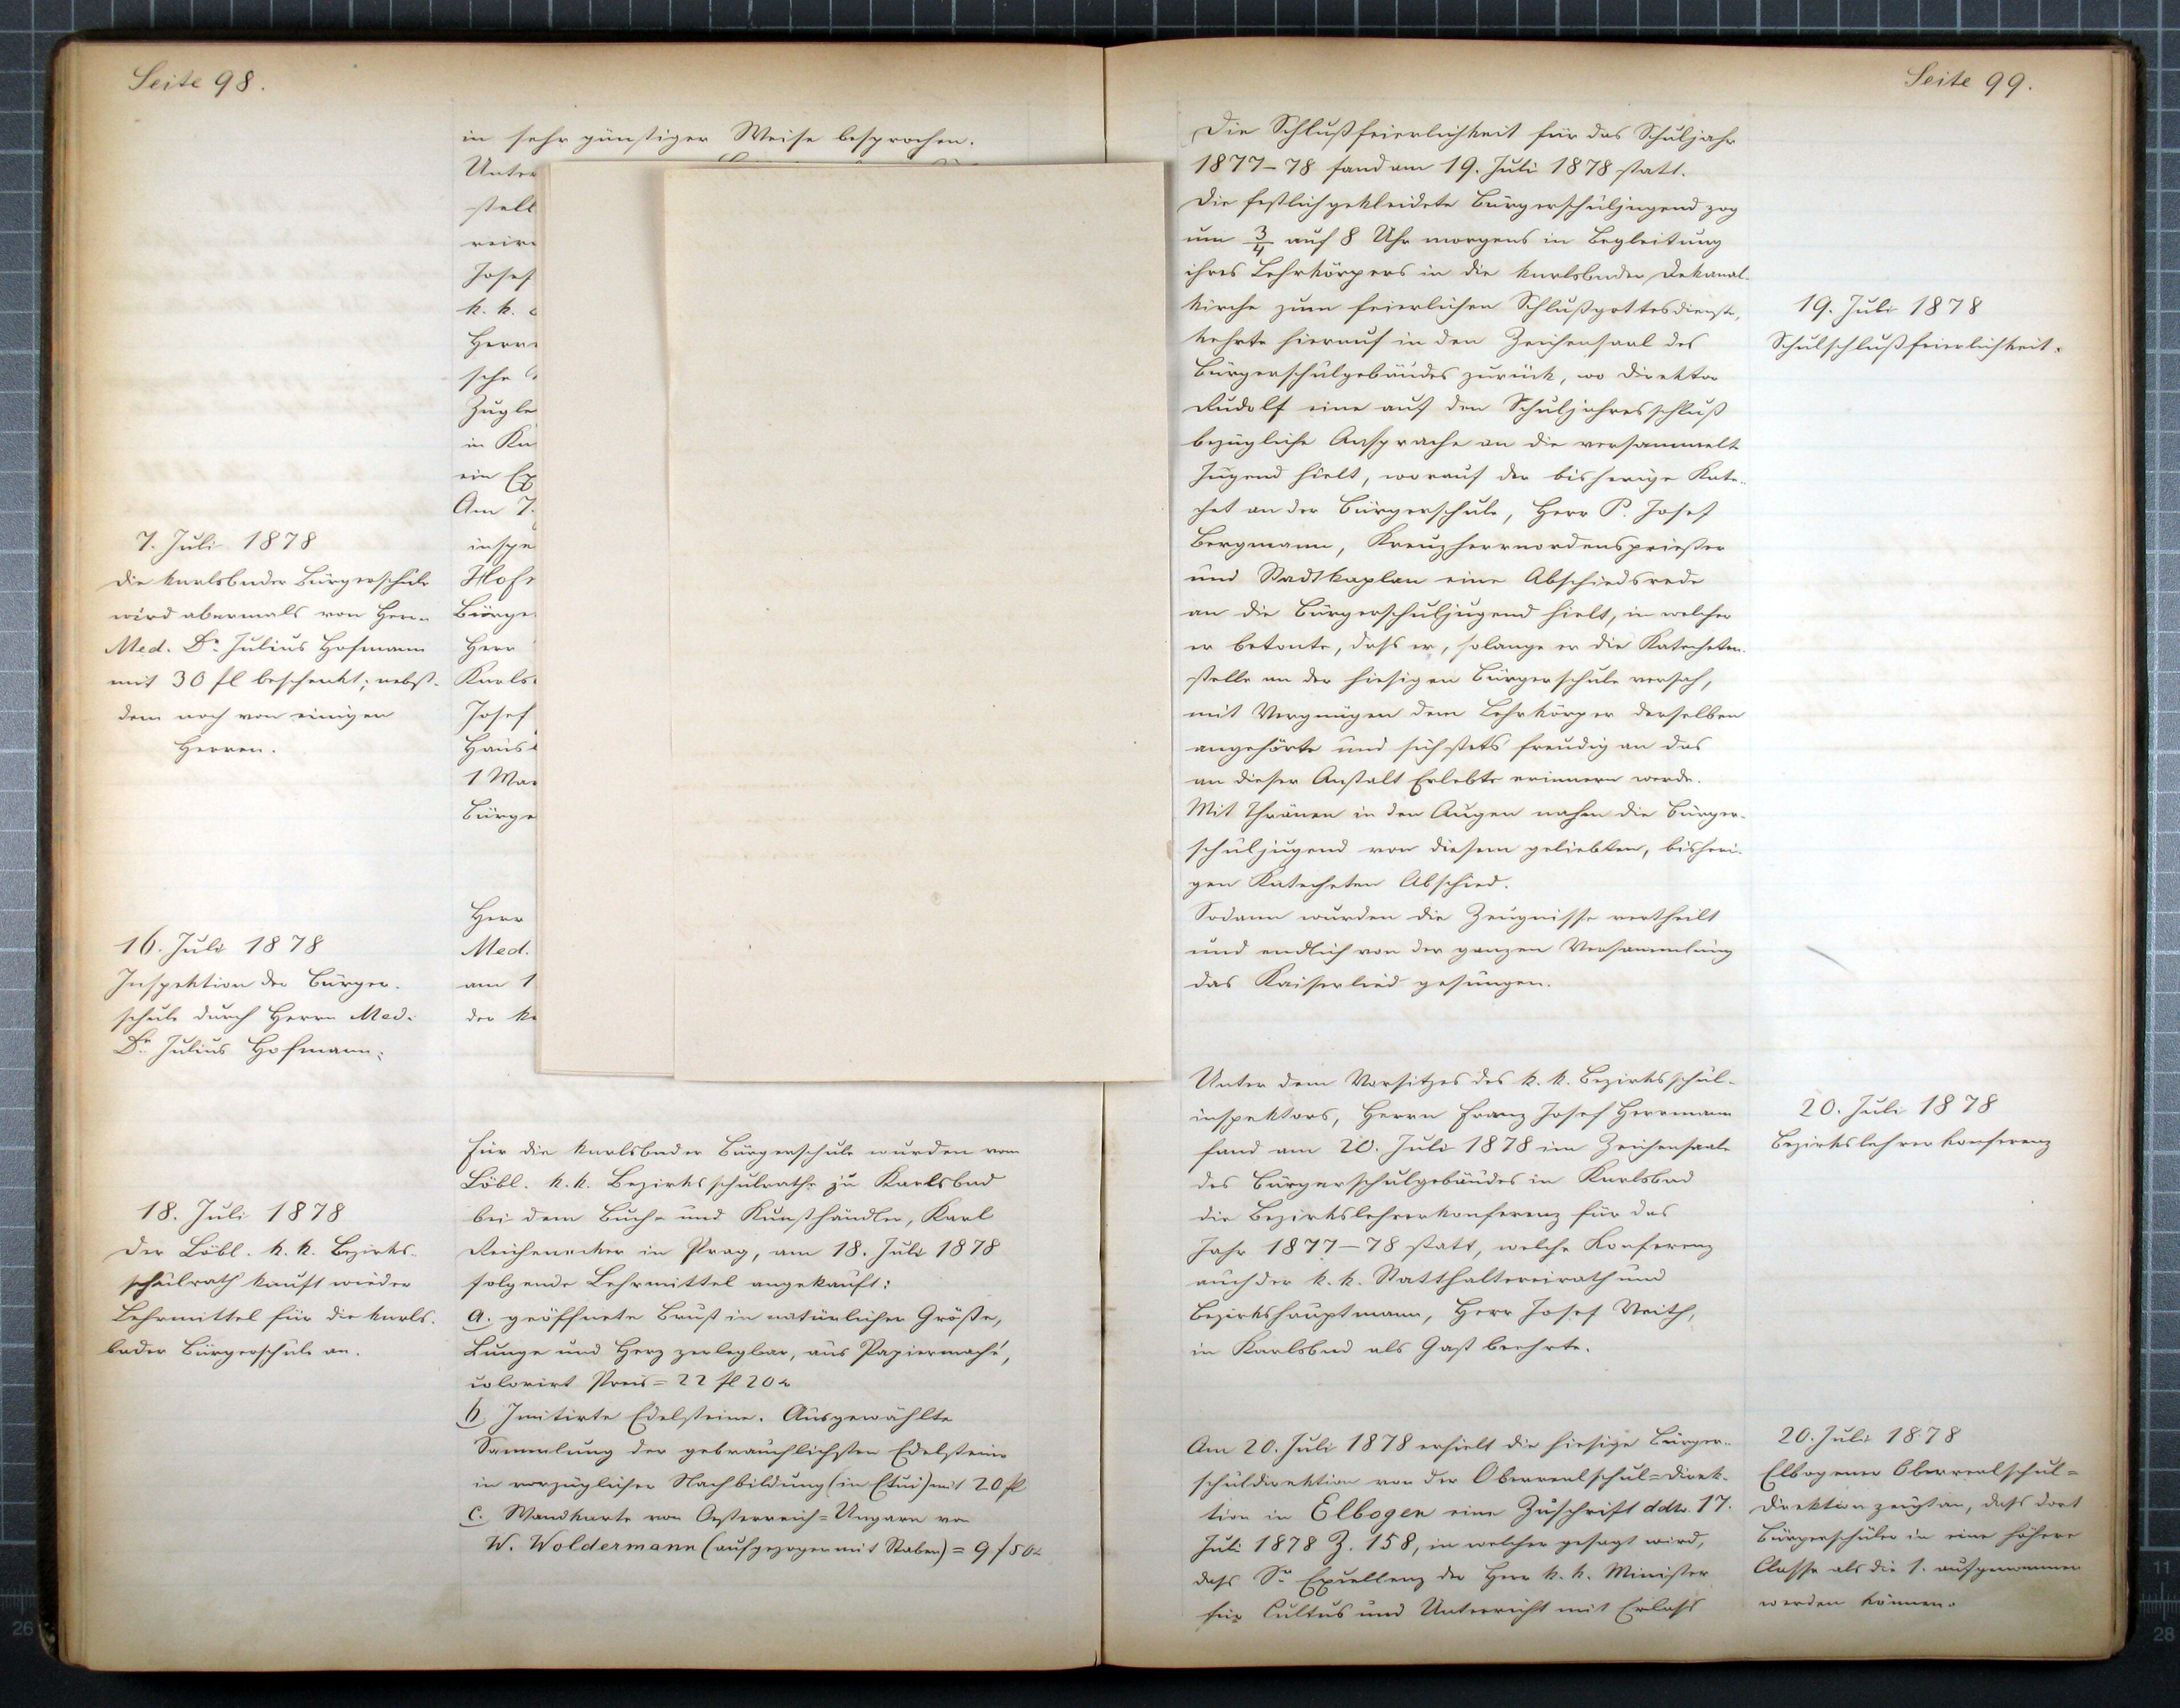 Seite 98.
in sehr günstiger Weise besprochen.
Unter
stell
reire
Josef
k. k.
Herrn
sche
Zugle
in Ka
ein Ex
Am 7.
7. Juli 1878
Die karlsbader Bürgerschule
wird abermals von Herrn
Med. Dr. Julius Hofmann
mit 30 fl beschenkt; nebst-
dem noch von einigen
Herren.
inspe
Hofr
Bürge
Herr
Karls
Josef
Haus
1 Wa
Bürge
16. Juli 1878
Inspektion der Bürger-
schule durch Herrn Med.
Dr. Julius Hofmann.
Herr
Med.
am 1
der k
18. Juli 1878
Der Löbl. k. k. Bezirks-
schulrath kauft wieder
Lehrmittel für die karls-
bader Bürgerschule an.
Für die karlsbader Bürgerschule wurden vom
Löbl. k. k. Bezirksschulrathe zu Karlsbad
bei dem Buch- und Kunsthändler, Karl
Reichenecker in Prag, am 18. Juli 1878
folgende Lehrmittel angekauft:
a. geöffnete Brust in natürlicher Größe,
Lunge und Herz zerlegbar, aus Papiermaché,
colorirt Preis = 22 fl 20 kr
b. Imitirte Edelsteine. Ausgewählte
Sammlung der gebräuchlichsten Edelsteine
in vorzüglicher Nachbildung (in Etui) mit 20 fl
c. Wandkarte von Oesterreich=Ungarn von
W. Woldermann (aufgezogen mit Staben) = 9 f 50 kr
Seite 99.
Die Schlußfeierlichkeit für das Schuljahr
1877–78 fand am 19. Juli 1878 statt.
Die festlich gekleidete Bürgerschuljugend zog
um 3/4 auf 8 Uhr morgens in Begleitung
ihres Lehrkörpers in die karlsbader Dekanal-
kirche zum feierlichen Schlußgottesdienste,
kehrte hierauf in den Zeichensaal des
Bürgerschulgebäudes zurück, wo Direktor
Rudolf eine auf den Schuljahresschluß
bezügliche Ansprache an die versammelte
Jugend hielt, worauf der bisherige Kate-
chet an der Bürgerschule, Herr P. Josef
Bergmann, Kreuzherrnordenspriester
und Stadtkaplan eine Abschiedsrede
an die Bürgerschuljugend hielt, in welcher
er betonte, dass er, solange er die Katecheten-
stelle an der hiesigen Bürgerschule versah,
mit Vergnügen dem Lehrkörper derselben
angehörte und sich stets freudig an das
an dieser Anstalt Erlebte erinnern werde.
Mit Thränen in den Augen nahm die Bürger-
schuljugend von diesem geliebten, bisheri-
gen Katecheten Abschied.
Sodann wurden die Zeugnisse vertheilt
und endlich von der ganzen Versammlung
das Kaiserlied gesungen.
19. Juli 1878
Schulschlußfeierlichkeit.
Unter dem Vorsitzes des k. k. Bezirksschul-
inspektors, Herrn Franz Josef Herrmann
fand am 20. Juli 1878 im Zeichensaale
des Bürgerschulgebäudes in Karlsbad
die Bezirkslehrerkonferenz für das
Jahr 1877–78 statt, welche Konferenz
auch der k. k. Statthaltereirath und
Bezirkshauptmann, Herr Josef Veith,
in Karlsbad als Gast beehrte.
20. Juli 1878
Bezirkslehrerkonferenz
Am 20. Juli 1878 erhielt die hiesige Bürger-
schuldirektion von der Oberrealschul=Direk-
tion in Elbogen eine Zuschrift ddto. 17.
Juli 1878 Z. 158, in welcher gesagt wird,
dass Sr. Excellenz der Herr k. k. Minister
für Cultus und Unterricht mit Erlass
20. Juli 1878
Elbogener Oberrealschul=
Direktion zeigt an, dass dort
Bürgerschüler in eine höhere
Classe als die 1. aufgenommen
werden können.